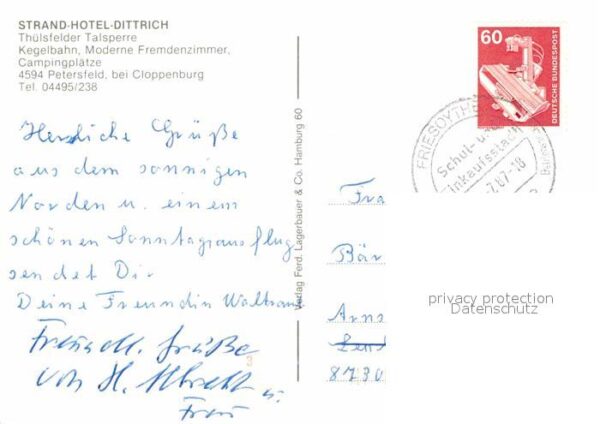 STRAND-HOTEL-DITTRICH
Thülsfelder Talsperre
Kegelbahn, Moderne Fremdenzimmer,
Campingplätze
4594 Petersfeld, bei Cloppenburg
Tel. 04495/238
Herzliche Grüße
aus dem sonnigen
Norden u. einem
schönen Sonntagsausflug
sendet Dir
Deine Freundin Waltraud
Freundl. Grüße
von H. Albrecht u.
Frau
Verlag Ferd. Lagerbauer & Co. Hamburg 60
60
DEUTSCHE BUNDESPOST
FRIESOYTHE
Schul- u.
Einkaufsstadt
7.87-18
Fra
Bär
Arns
8730
privacy protection
Datenschutz